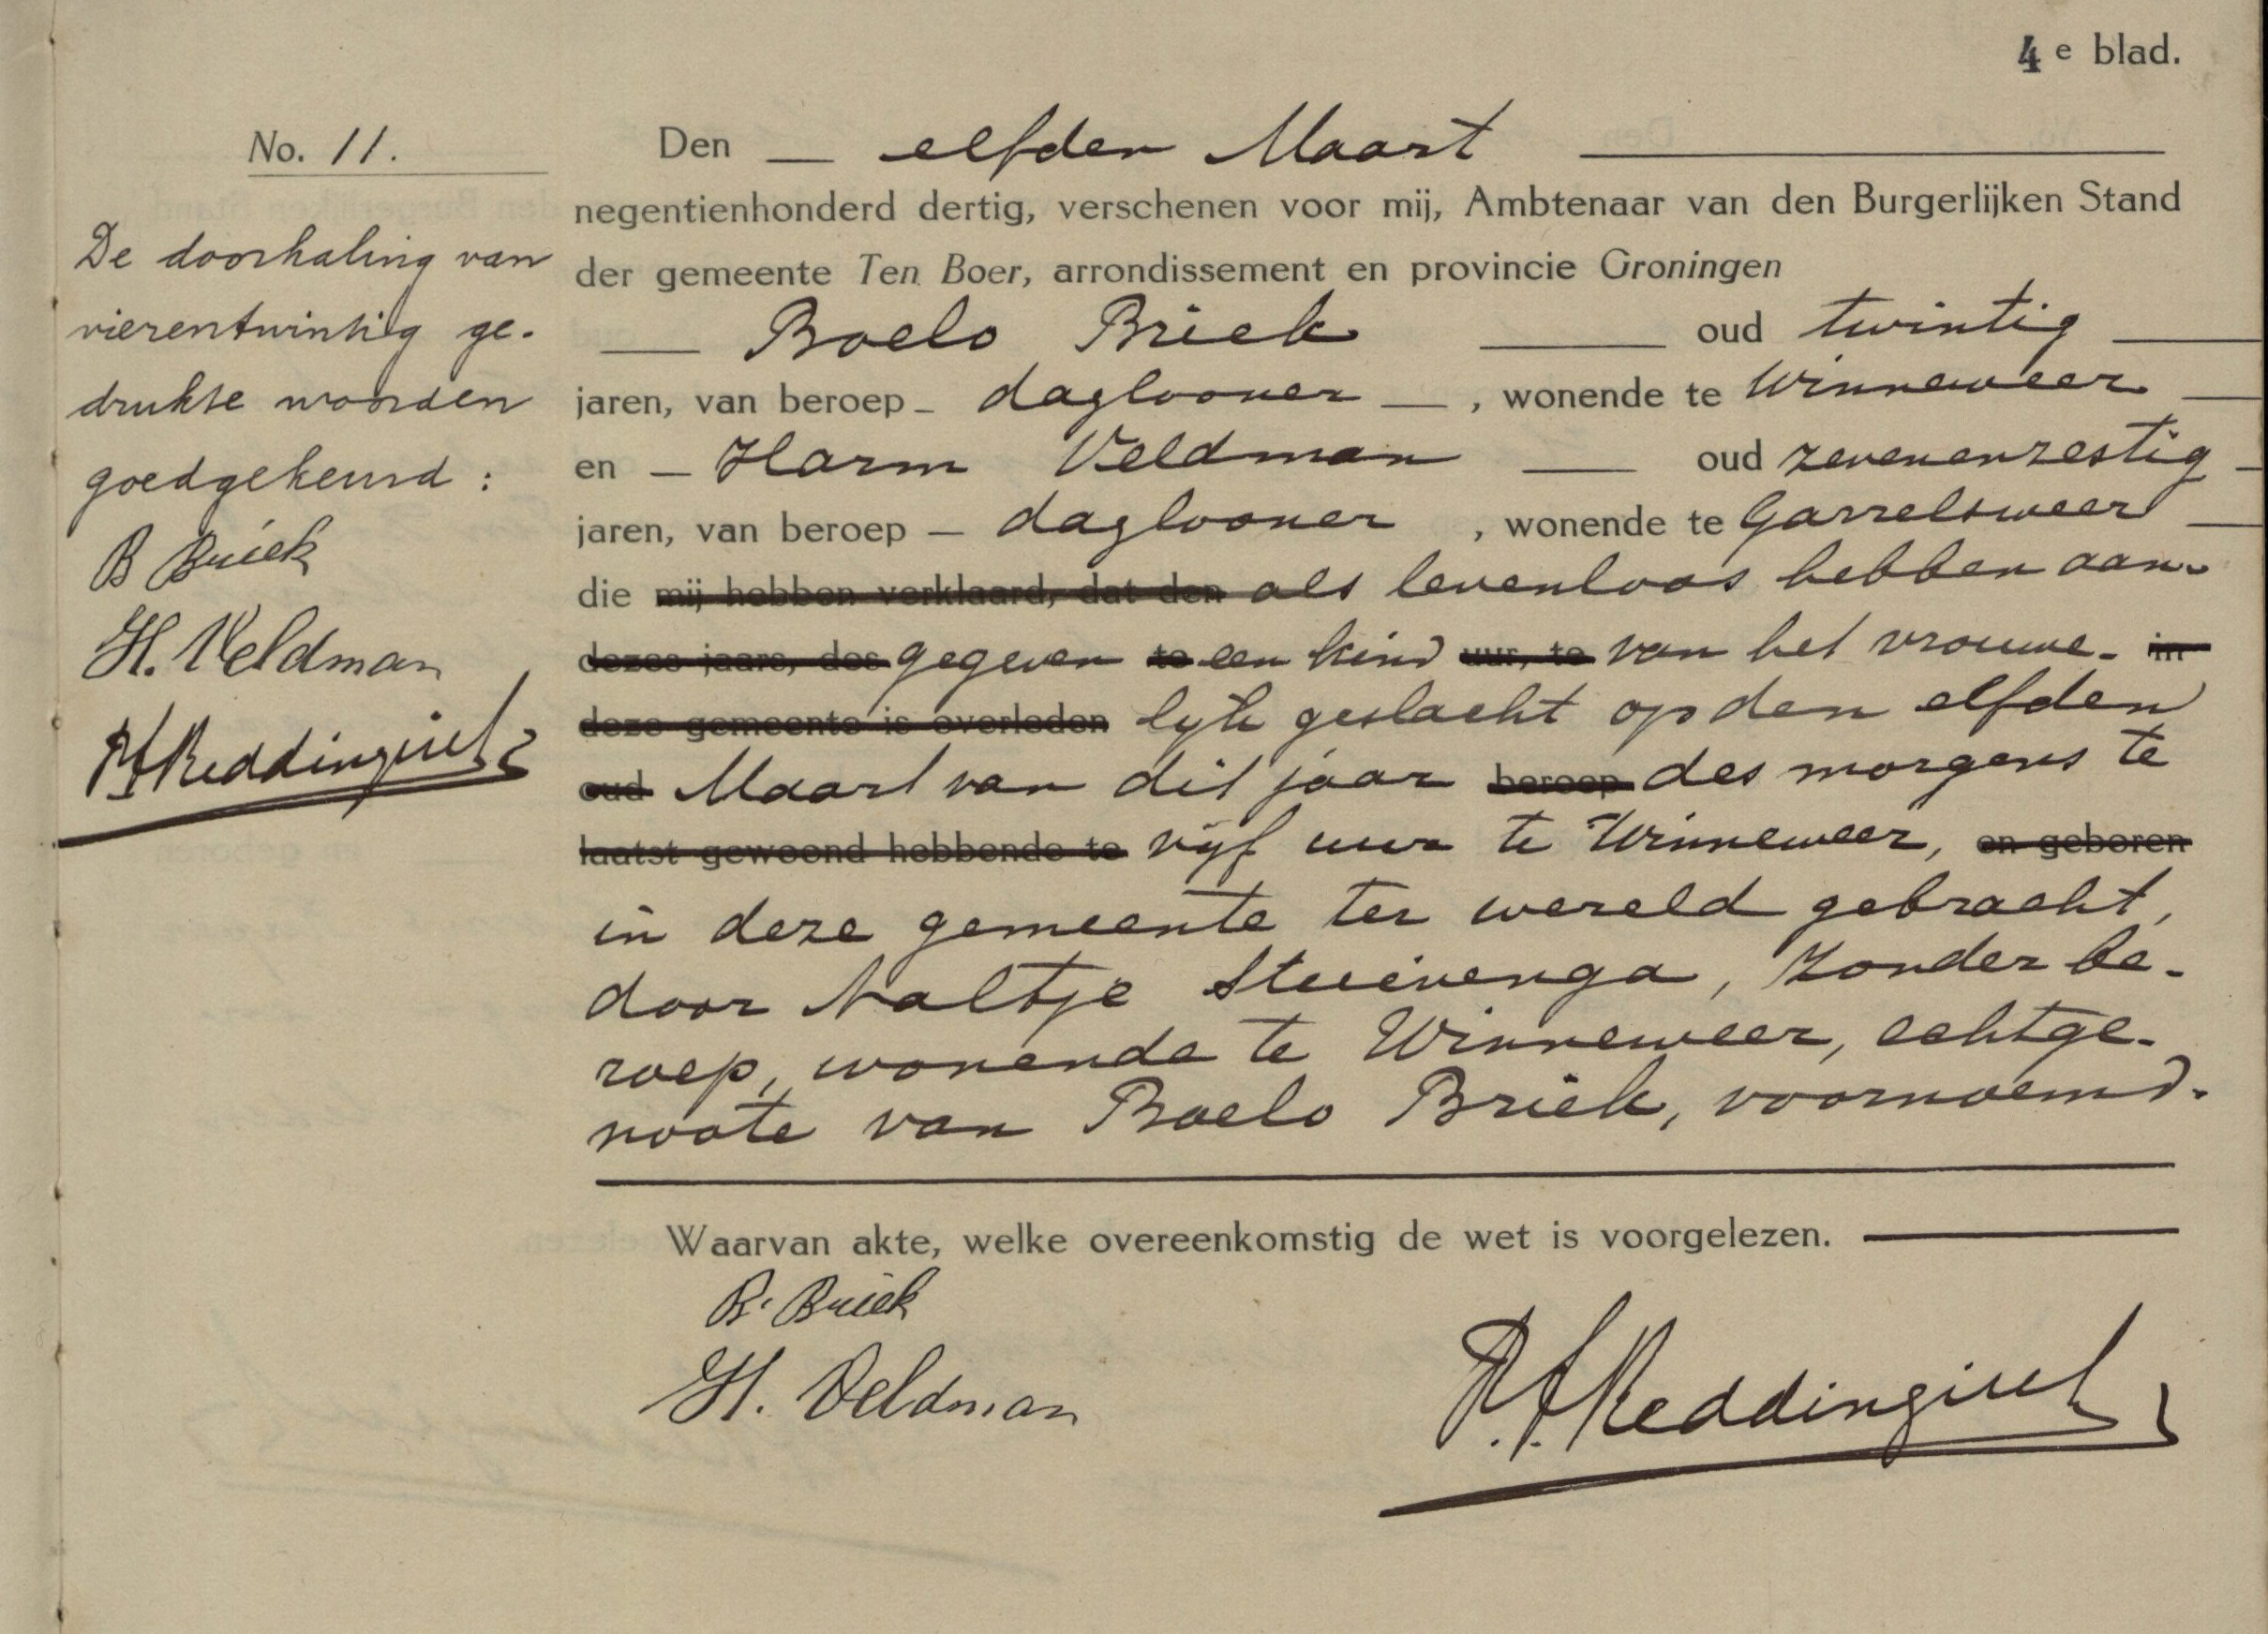 4e blad.
No. 11.
De doorhaling van
vierentwintig ge-
drukte woorden
goedgekeurd:
B Briek
H. Veldman
Den — elfden Maart
negentienhonderd dertig, verschenen voor mij, Ambtenaar van den Burgerlijken Stand
der gemeente Ten Boer, arrondissement en provincie Groningen
Boelo Briek oud twintig
jaren, van beroep - daglooner —, wonende te Winneweer
en - Harm Veldman — oud zevenenzestig
jaren, van beroep - daglooner, wonende te Garrelsweer
die mij hebben verklaard, dat den als levenloos hebben aan-
dezes jaars, des gegeven te een kind uur, te van het vrouwe- in
deze gemeente is overleden lijk geslacht op den elfden
oud Maart van dit jaar beroep des morgens te
laatst gewoond hebbende te vijf uur te Winneweer, en geboren
in deze gemeente ter wereld gebracht,
door Aaltje Stuivenga, zonder be-
roep, wonende te Winneweer, echtge-
noote van Boelo Briek, voornoemd.
Waarvan akte, welke overeenkomstig de wet is voorgelezen.
B. Briek
H. Veldman